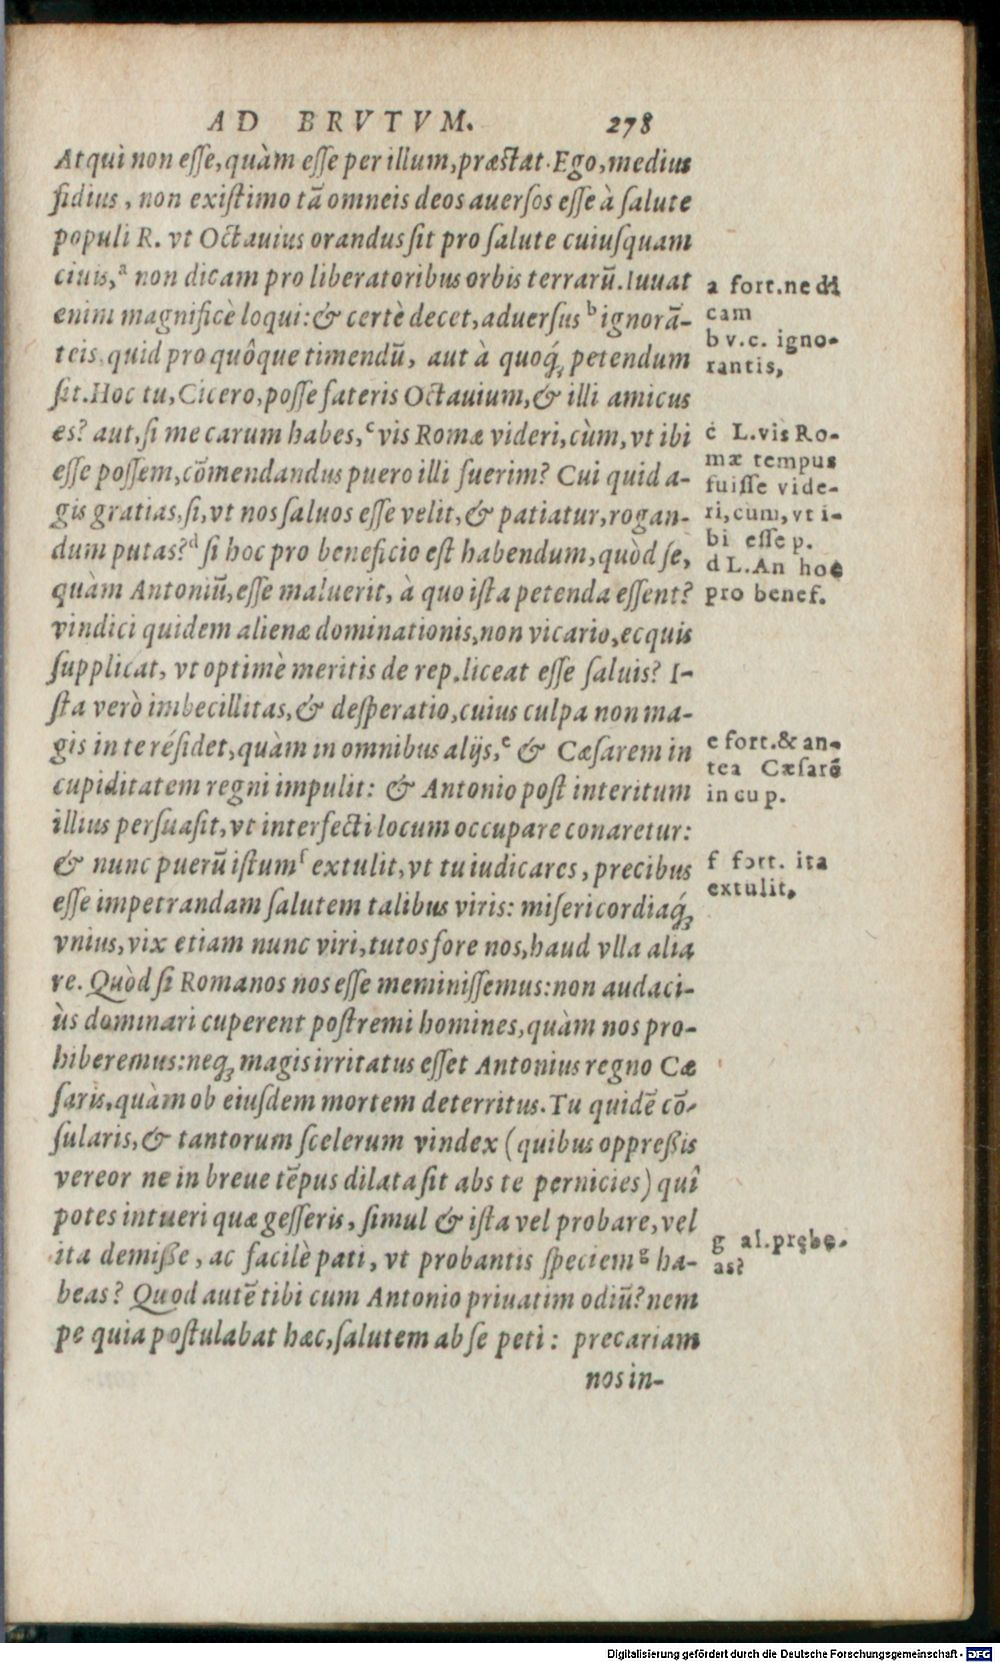 AD BRVTVM. 278
Atqui non eſſe, quàm eſſe per illum, præſtat. Ego, medius
fidius, non exiſtimo tã omneis deos auerſos eſſe à ſalute
populi R. vt Octauius orandus ſit pro ſalute cuiuſquam
ciuis,ᵃ non dicam pro liberatoribus orbis terrarũ. Iuuat
enim magnificè loqui: & certè decet, aduerſus ᵇ ignorã-
teis quid pro quôque timendũ, aut à quoq́; petendum
ſit. Hoc tu, Cicero, poſſe fateris Octauium, & illi amicus
es? aut, ſi me carum habes, ᶜ vis Romæ videri, cùm, vt ibi
eſſe poſſem, cõmendandus puero illi fuerim? Cui quid a-
gis gratias, ſi, vt nos ſaluos eſſe velit, & patiatur, rogan-
dum putas? ᵈ ſi hoc pro beneficio eſt habendum, quòd ſe,
quàm Antoniũ, eſſe maluerit, à quo iſta petenda eſſent?
vindici quidem alienæ dominationis, non vicario, ecquis
ſupplicat, vt optimè meritis de rep. liceat eſſe ſaluis? I-
ſta verò imbecillitas, & deſperatio, cuius culpa non ma-
gis in te réſidet, quàm in omnibus alijs, ᵉ & Cæſarem in
cupiditatem regni impulit: & Antonio poſt interitum
illius perſuaſit, vt interfecti locum occupare conaretur:
& nunc puerũ iſtum ᶠ extulit, vt tu iudicares, precibus
eſſe impetrandam ſalutem talibus viris: miſericordiaq́;
vnius, vix etiam nunc viri, tutos fore nos, haud vlla alia
re. Quòd ſi Romanos nos eſſe meminiſſemus: non audaci-
ùs dominari cuperent poſtremi homines, quàm nos pro-
hiberemus: neq; magis irritatus eſſet Antonius regno Cæ
ſaris, quàm ob eiuſdem mortem deterritus. Tu quidẽ cõ-
ſularis, & tantorum ſcelerum vindex (quibus oppreßis
vereor ne in breue tẽpus dilata ſit abs te pernicies) quî
potes intueri quæ geſſeris, ſimul & iſta vel probare, vel
ita demiße, ac facilè pati, vt probantis ſpeciem ᵍ ha-
beas? Quod autẽ tibi cum Antonio priuatim odiũ? nem
pe quia poſtulabat hæc, ſalutem ab ſe peti: precariam
nos in-
a fort. ne di
cam
b v.c. igno-
rantis,
c L. vis Ro-
mæ tempus
fuiſſe vide-
ri, cum, vt i-
bi eſſe p.
d L. An hoc
pro benef.
e fort. & an-
tea Cæſarẽ
in cup.
f fort. ita
extulit,
g al. prębe-
as?
Digitalisierung gefördert durch die Deutsche Forschungsgemeinschaft - DFG